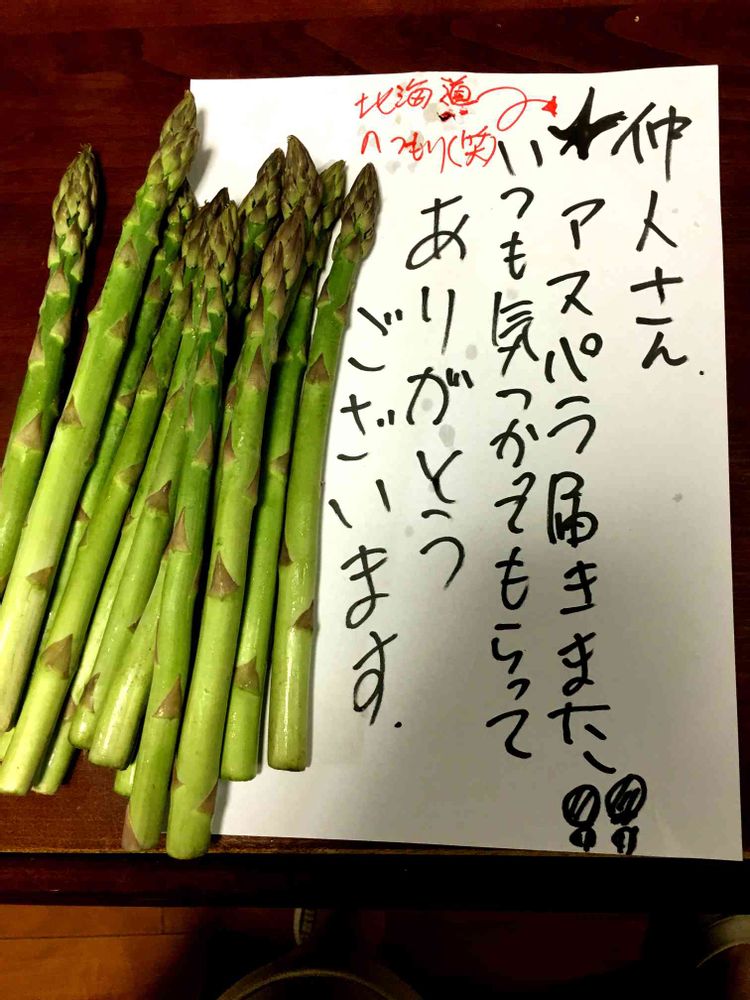 仲人さん.
アスパラ届きました!!
いつも気つかってもらって
ありがとう
ございます.
北海道
のつもり(笑)